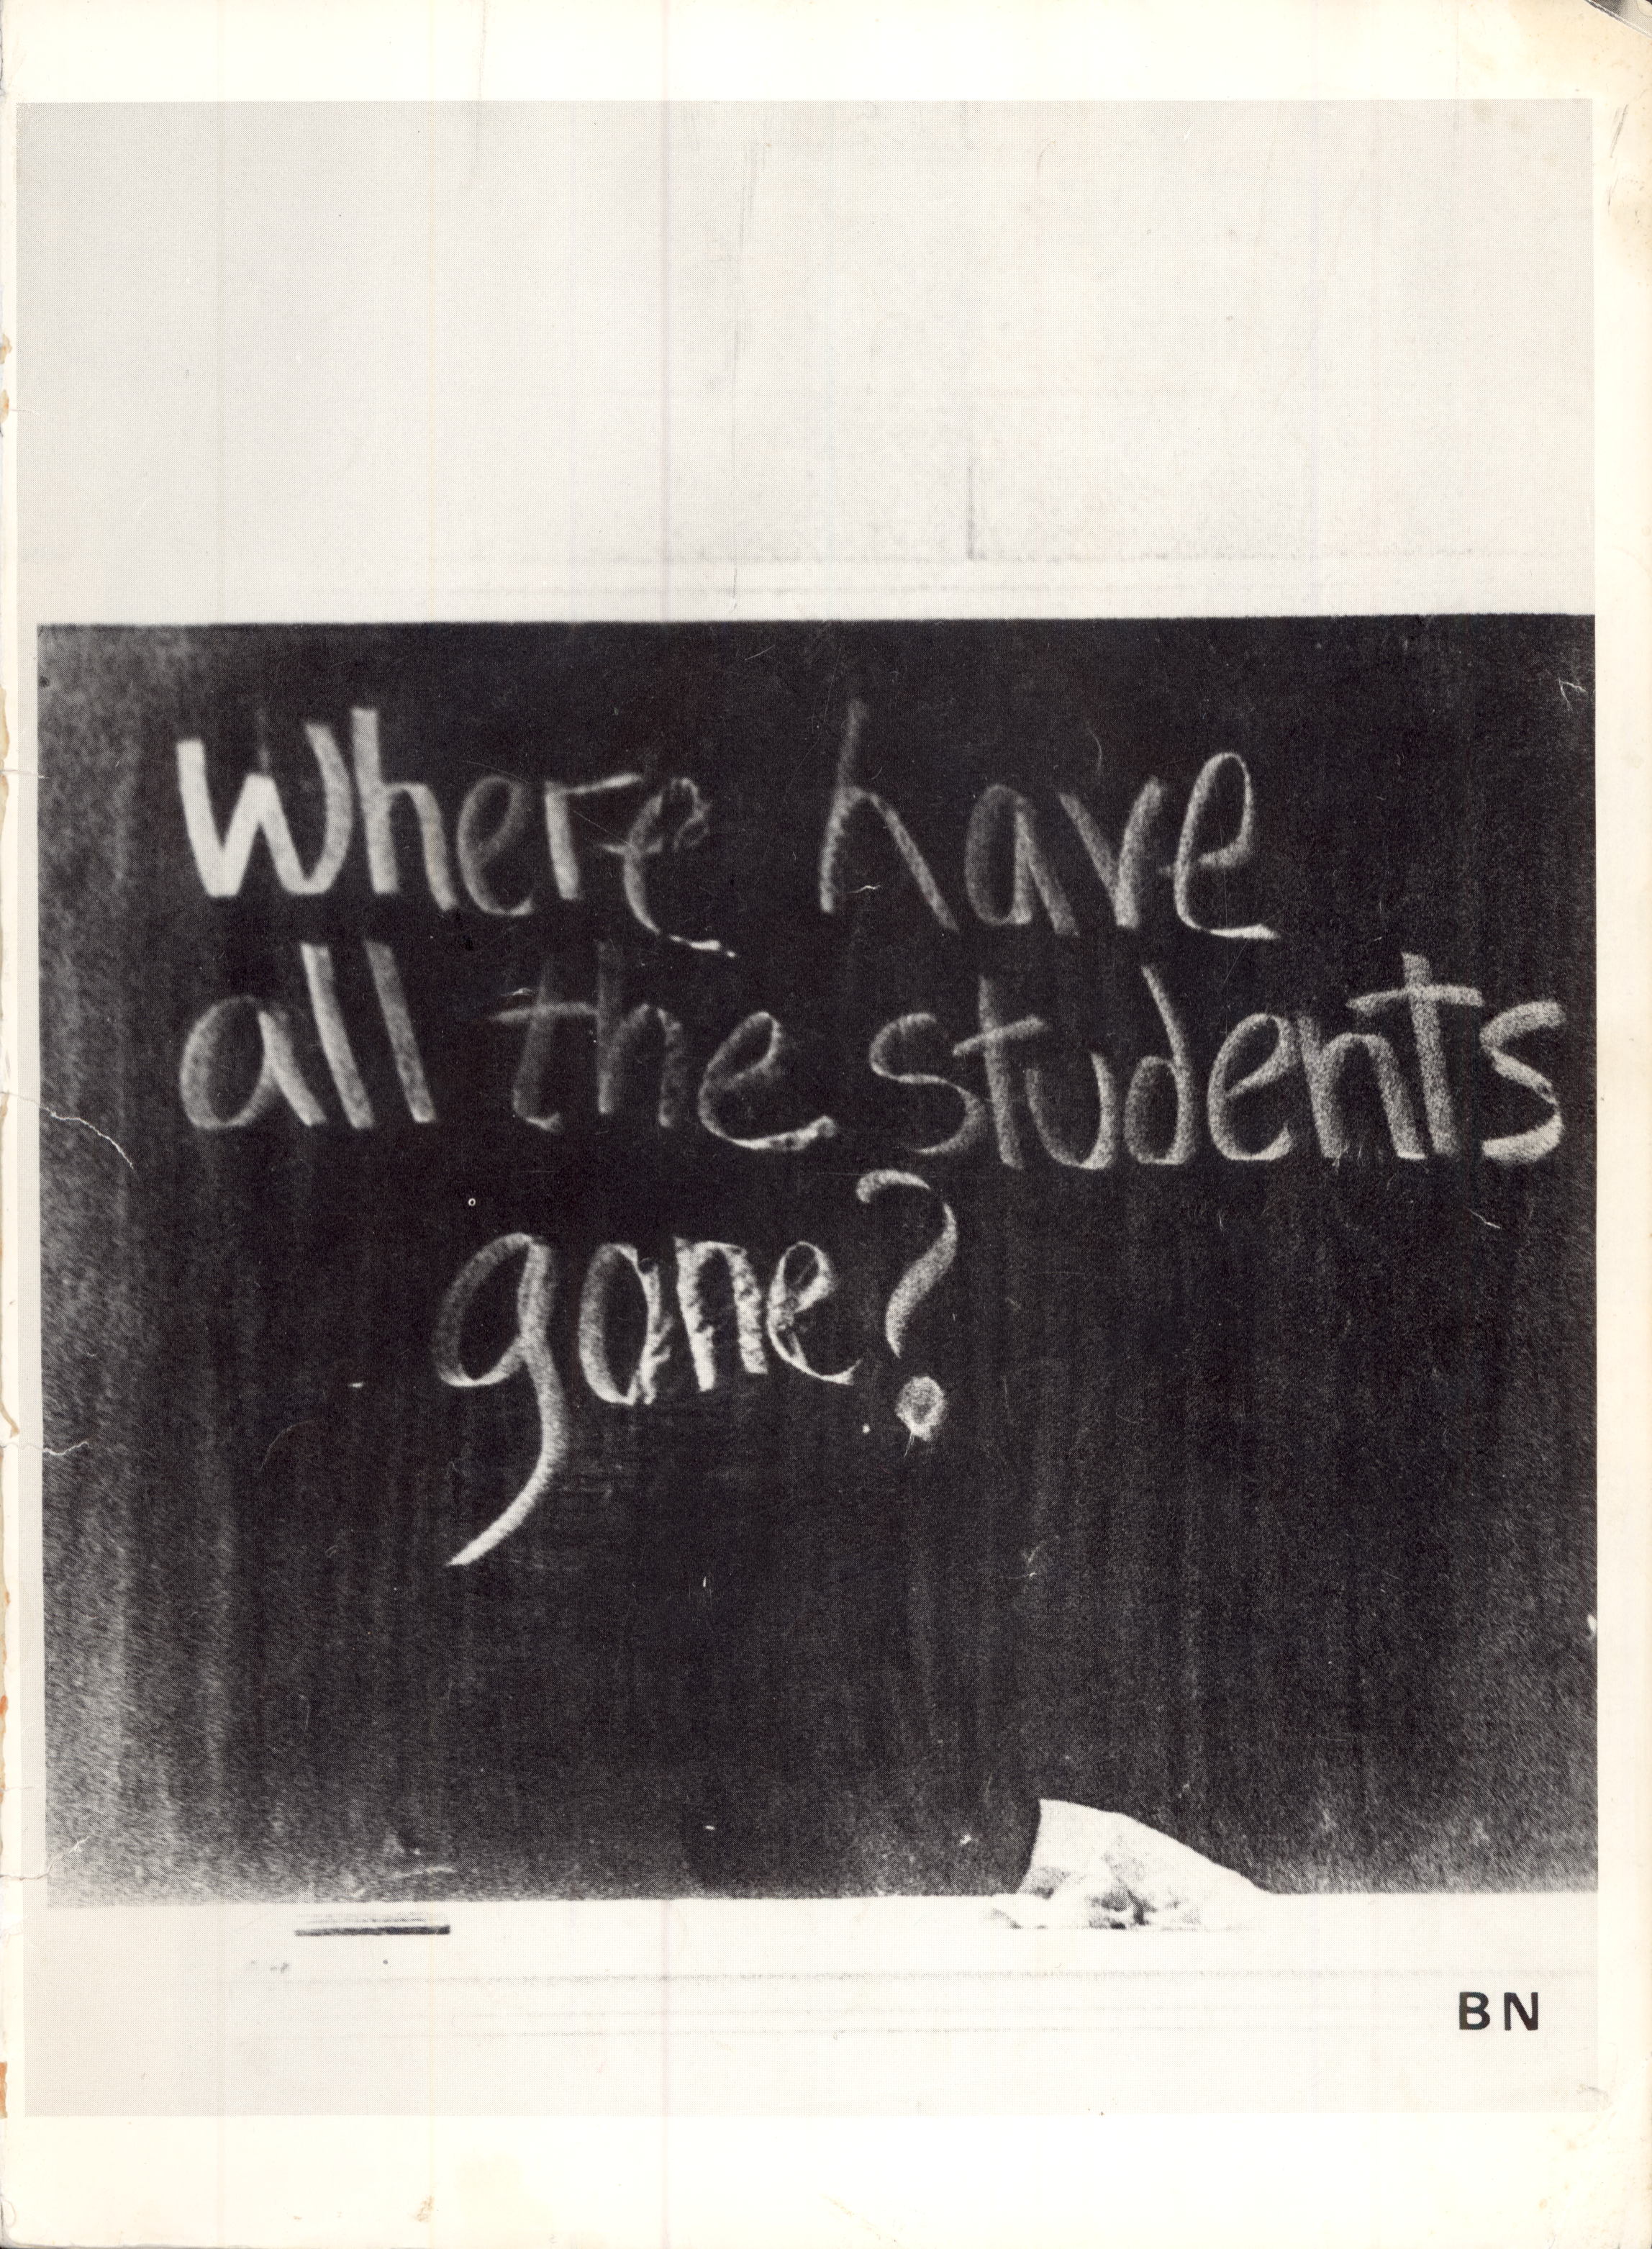 Where have
all the students
gone?
BN